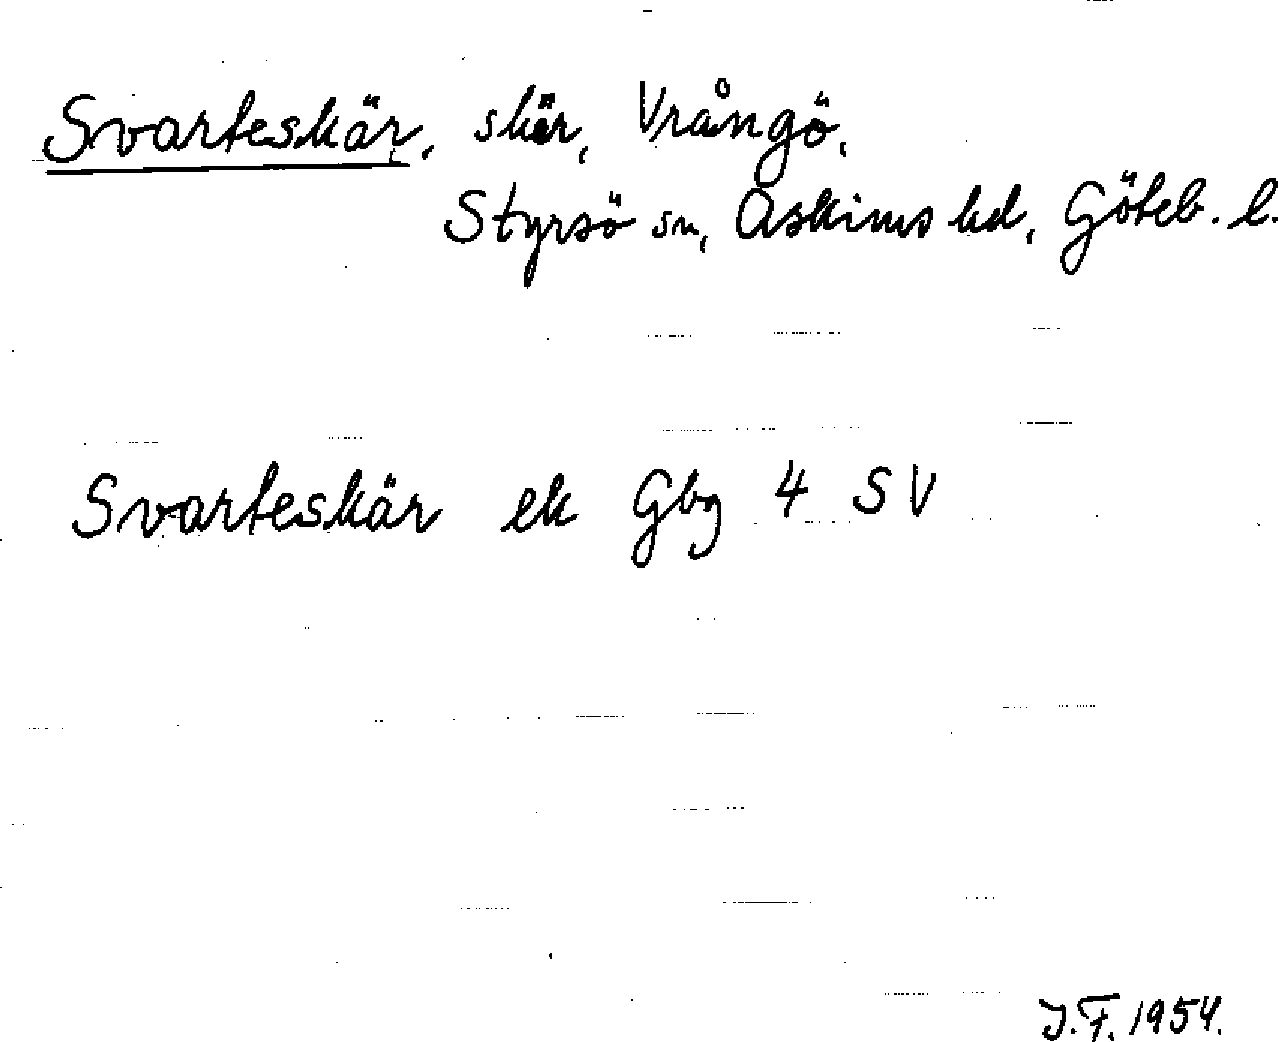 Svarteskär, skär, Vrångö,
Styrsö sn, Askims hd, Göteb. l.
Svarteskär ek Gbg 4 SV
J.F. 1954.